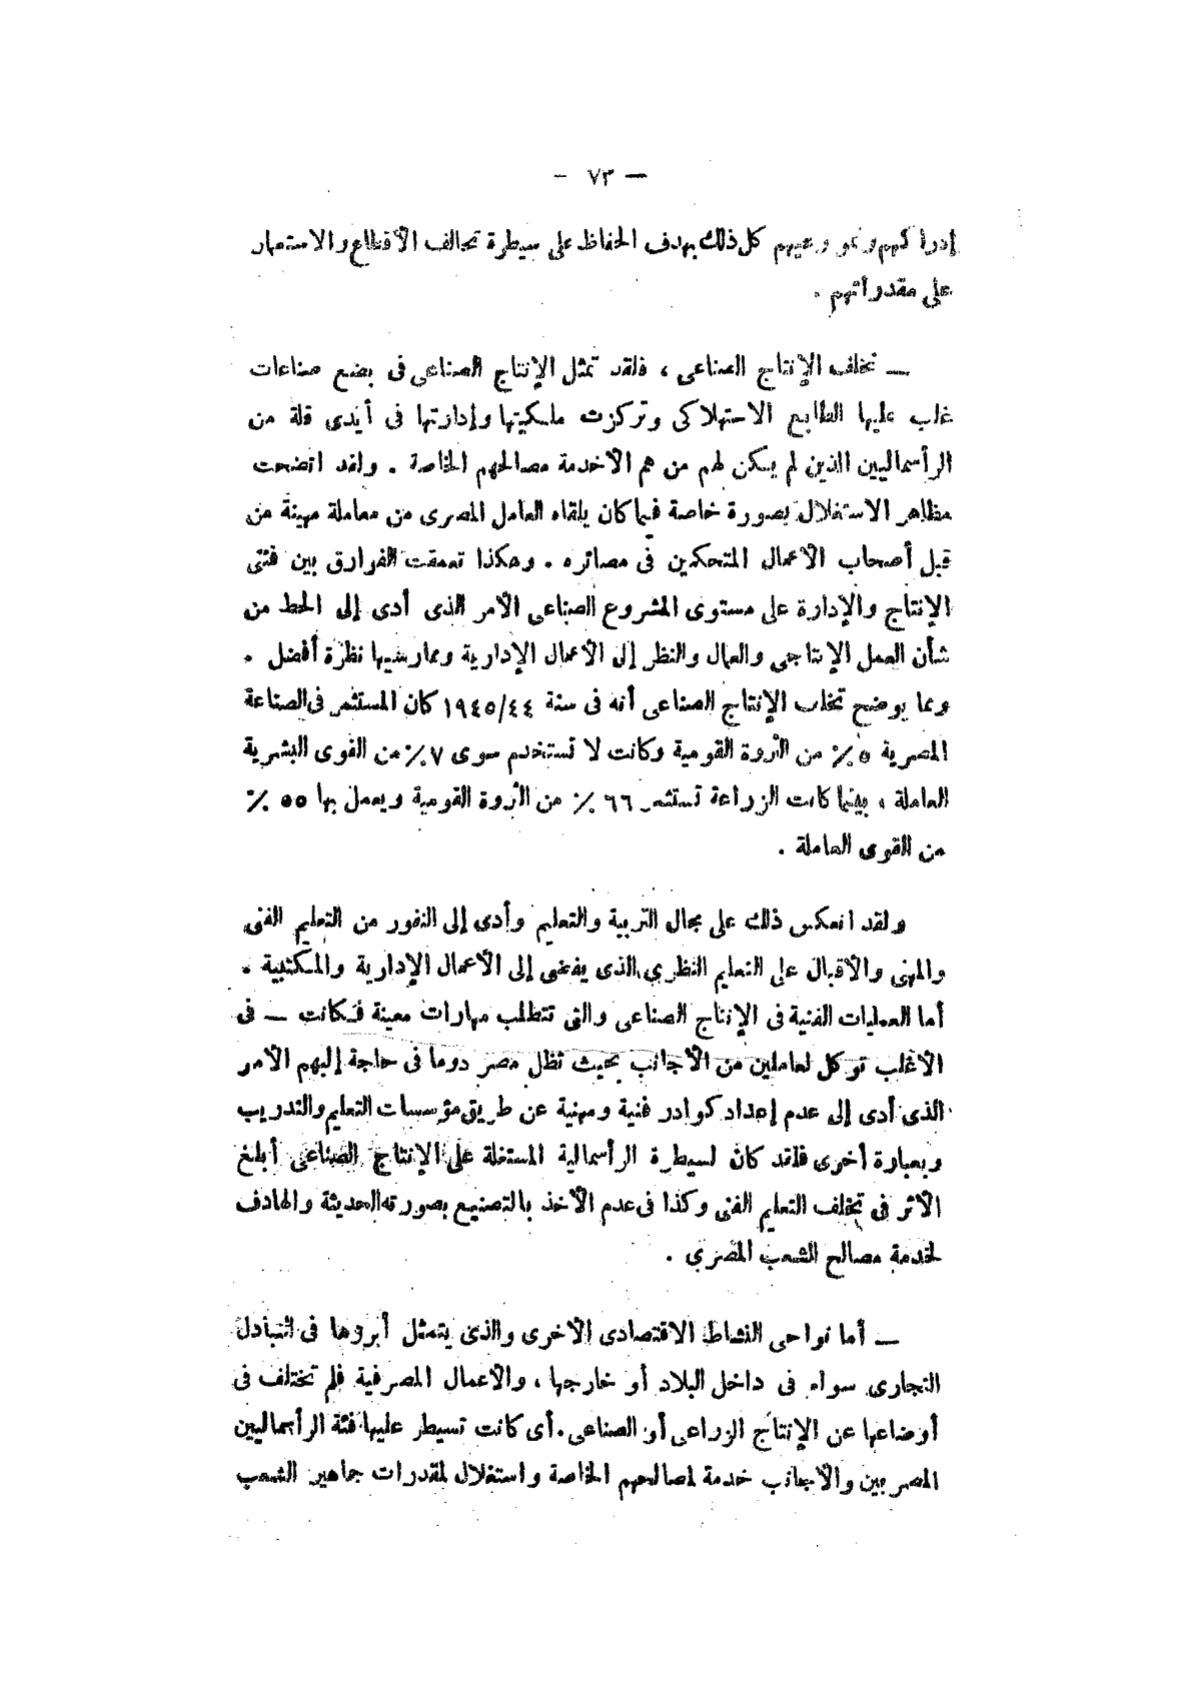 — ٧٣ —
إدراكهم ونمو وعيهم كل ذلك بهدف الحفاظ على سيطرة تحالف الأقطاع والاستعمار
على مقدراتهم .
— تخلف الإنتاج الصناعى ، فلقد تمثل الإنتاج الصناعى فى بضع صناعات
غلب عليها الطابع الاستهلاكى وتركزت ملكيتها وإدارتها فى أيدى قلة من
الرأسماليين الذين لم يكن لهم من هم الأخدمة مصالحهم الخاصة . ولقد اتضحت
مظاهر الاستغلال بصورة خاصة فيما كان يلقاه العامل المصرى من معاملة مهينة من
قبل أصحاب الأعمال المتحكمين فى مصائره . وهكذا تعمقت الفوارق بين فئتى
الإنتاج والإدارة على مستوى المشروع الصناعى الأمر الذى أدى إلى الحط من
شأن العمل الإنتاجى والعمال والنظر إلى الأعمال الإدارية وممارسيها نظرة أفضل .
ومما يوضح تخلف الإنتاج الصناعى أنه فى سنة ١٩٤٥/٤٤ كان المستثمر فى الصناعة
المصرية ٥٪ من الثروة القومية وكانت لا تستخدم سوى ٧٪ من القوى البشرية
العاملة ، بينما كانت الزراعة تستثمر ٦٦ ٪ من الثروة القومية ويعمل بها ٥٥ ٪
من القوى العاملة .
ولقد انعكس ذلك على مجال التربية والتعليم وأدى إلى النفور من التعليم الفنى
والمهنى والأقبال على التعليم النظرى الذى يفضى إلى الأعمال الإدارية والمكتبية .
أما العمليات الفنية فى الإنتاج الصناعى والتى تتطلب مهارات معينة فكانت — فى
الأغلب توكل لعاملين من الأجانب بحيث تظل مصر دوما فى حاجة إليهم الأمر
الذى أدى إلى عدم إعداد كوادر فنية ومهنية عن طريق مؤسسات التعليم والتدريب
وبعبارة أخرى فلقد كان لسيطرة الرأسمالية المستغلة على الإنتاج الصناعى أبلغ
الأثر فى تخلف التعليم الفنى وكذا فى عدم الأخذ بالتصنيع بصورته الحديثة والهادف
لخدمة مصالح الشعب المصرى .
— أما نواحى النشاط الاقتصادى الأخرى والذى يتمثل أبرزها فى التبادل
التجارى سواء فى داخل البلاد أو خارجها ، والأعمال المصرفية فلم تختلف فى
أوضاعها عن الإنتاج الزراعى أو الصناعى . أى كانت تسيطر عليها فئة الرأسماليين
المصريين والأجانب خدمة لمصالحهم الخاصة واستغلال لمقدرات جماهير الشعب